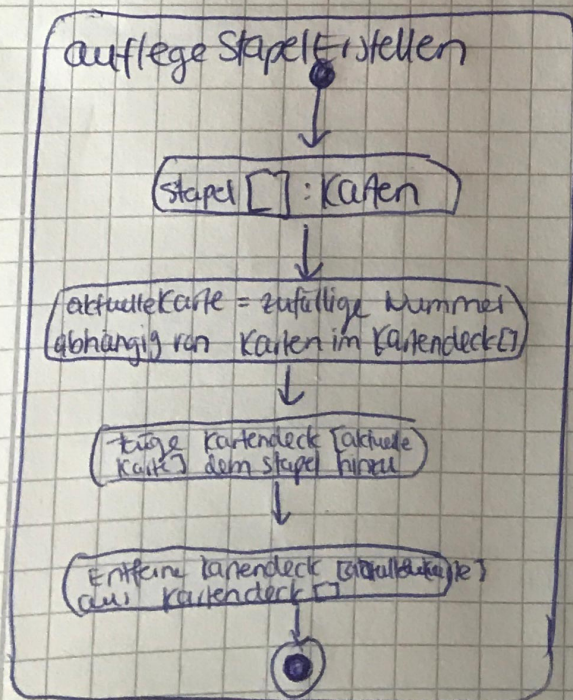 auflegeStapelErstellen
Stapel [] : Karten
aktuelleKarte = zufällige Nummer
abhängig von Karten im Kartendeck[]
Füge Kartendeck [aktuelle
Karte] dem Stapel hinzu
Entferne Kartendeck [aktuelleKarte]
aus Kartendeck []